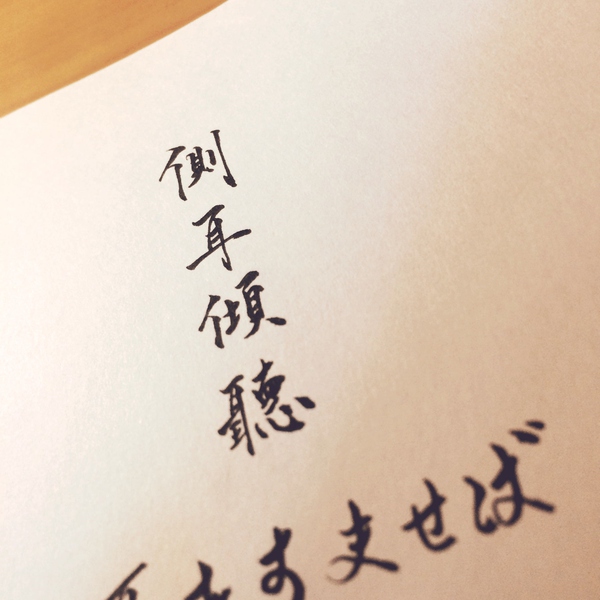 側耳傾聽
耳をすませば